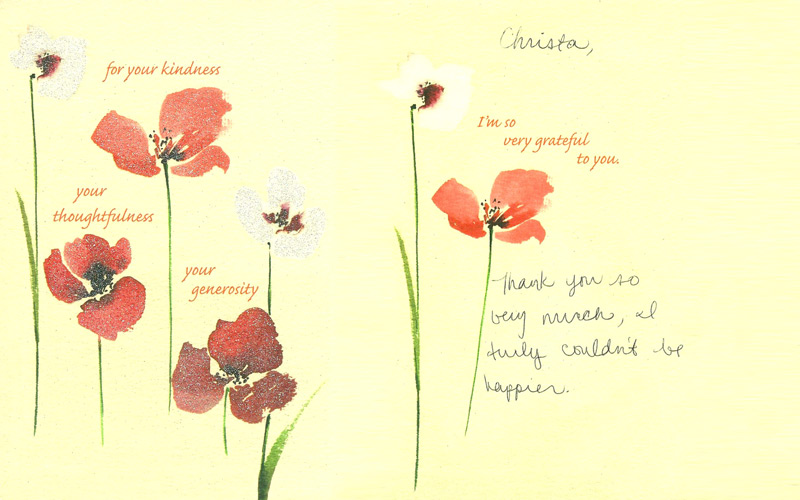 for your kindness
your
thoughtfulness
your
generosity
Christa,
I'm so
very grateful
to you.
Thank you so
very much, I
truly couldn't be
happier.